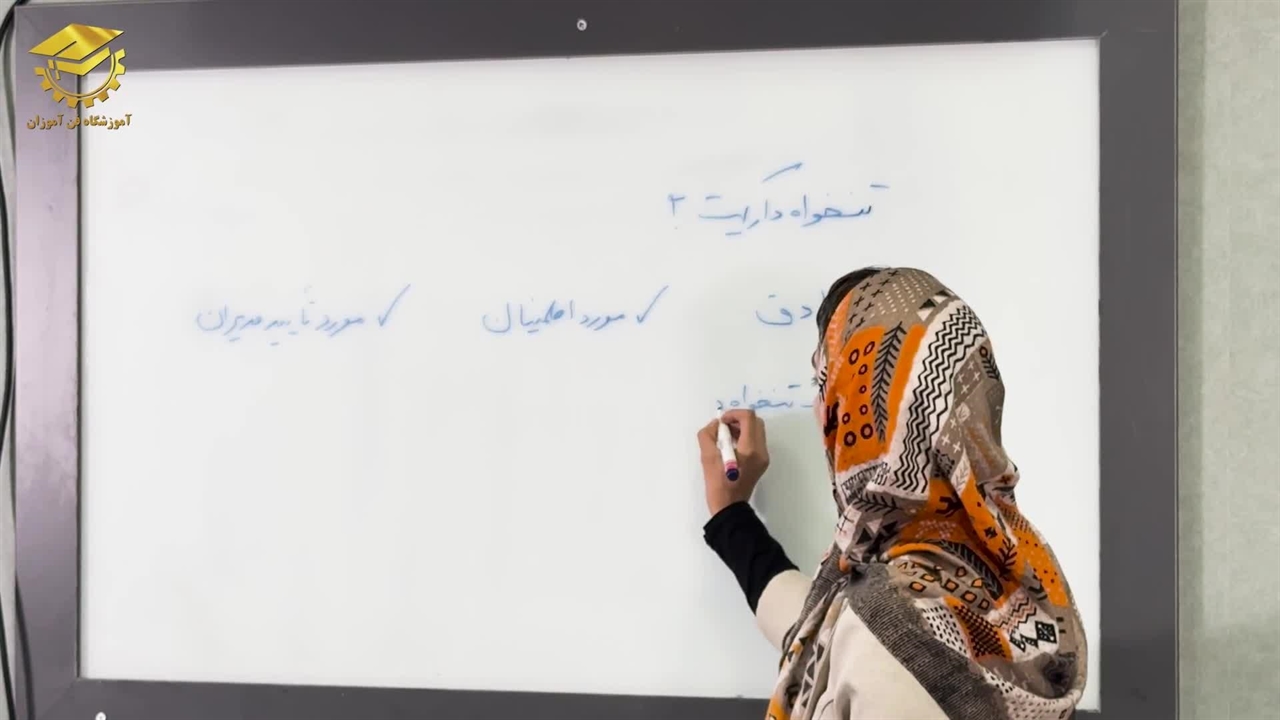 آموزشگاه فن آموزان
تنخواه دار کیست ؟
✓ مورد اطمینان ✓ مورد تأیید مدیران
تنخواه د